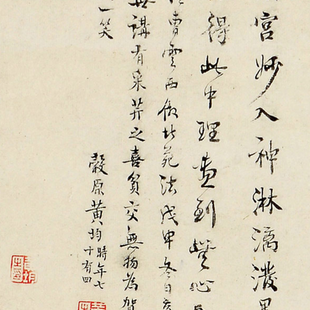 宮妙入神淋漓潑墨
得此中理畫到驚心
曹雲西倣北苑法戊申冬日
無講有采芹之喜貧交無物為賀
一笑
穀原黃均時年七
十有四